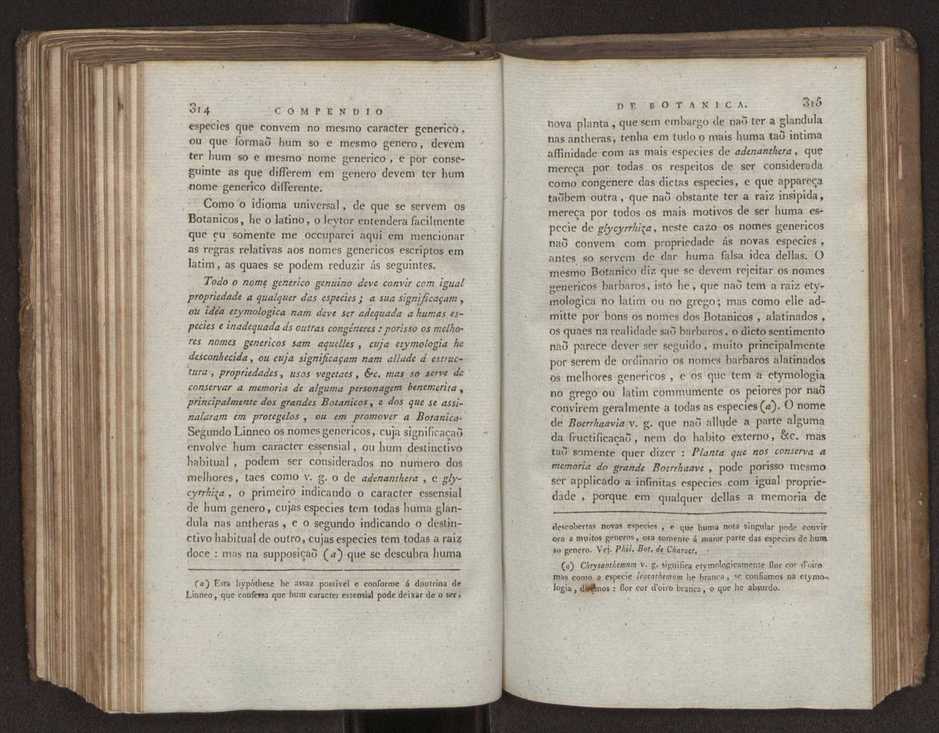 314 COMPENDIO
especies que convem no mesmo caracter generico,
ou que formaõ hum so e mesmo genero, devem
ter hum so e mesmo nome generico, e por conse-
guinte as que differem em genero devem ter hum
nome generico differente.
Como o idioma universal, de que se servem os
Botanicos, he o latino, o leytor entendera facilmente
que eu somente me occuparei aqui em mencionar
as regras relativas aos nomes genericos escriptos em
latim, as quaes se podem reduzir ás seguintes.
Todo o nome generico genuino deve convir com igual
propriedade a qualquer das especies; a sua significaçam,
ou idéa etymologica nam deve ser adequada a humas es-
pecies e inadequada ás outras congéneres: porisso os melho-
res nomes genericos sam aquelles, cuja etymologia he
desconhecida, ou cuja significaçam nam allude á estruc-
tura, propriedades, usos vegetaes, &c. mas so serve de
conservar a memoria de alguma personagem benemerita,
principalmente dos grandes Botanicos, e dos que se assi-
nalaram em protegelos, ou em promover a Botanica.
Segundo Linneo os nomes genericos, cuja significaçaõ
envolve hum caracter essensial, ou hum destinctivo
habitual, podem ser considerados no numero dos
melhores, taes como v. g. o de adenanthera, e gly-
cyrrhiza, o primeiro indicando o caracter essensial
de hum genero, cujas especies tem todas huma glan-
dula nas antheras, e o segundo indicando o destin-
ctivo habitual de outro, cujas especies tem todas a raiz
doce: mas na supposiçaõ (a) que se descubra huma
(a) Esta hypóthese he assaz possivel e conforme á doutrina de
Linneo, que confessa que hum caracter essensial pode deixar de o ser,
DE BOTANICA. 315
nova planta, que sem embargo de naõ ter a glandula
nas antheras, tenha em tudo o mais huma taõ intima
affinidade com as mais especies de adenanthera, que
mereça por todas os respeitos de ser considerada
como congenere das dictas especies, e que appareça
taõbem outra, que naõ obstante ter a raiz insipida,
mereça por todos os mais motivos de ser huma es-
pecie de glycyrrhiza, neste cazo os nomes genericos
naõ convem com propriedade ás novas especies,
antes so servem de dar huma falsa idea dellas. O
mesmo Botanico diz que se devem rejeitar os nomes
genericos barbaros, isto he, que naõ tem a raiz ety-
mologica no latim ou no grego; mas como elle ad-
mitte por bons os nomes dos Botanicos, alatinados,
os quaes na realidade saõ barbaros, o dicto sentimento
naõ parece dever ser seguido, muito principalmente
por serem de ordinario os nomes barbaros alatinados
os melhores genericos, e os que tem a etymologia
no grego ou latim commumente os peiores por naõ
convirem geralmente a todas as especies (a). O nome
de Boerrhaavia v. g. que naõ allude a parte alguma
da fructificaçaõ, nem do habito externo, &c. mas
taõ somente quer dizer: Planta que nos conserva a
memoria do grande Boerrhaave, pode porisso mesmo
ser applicado a infinitas especies com igual proprie-
dade, porque em qualquer dellas a memoria de
descobertas novas especies, e que huma nota singular pode convir
ora a muitos generos, ora somente á maior parte das especies de hum
so genero. Vej. Phil. Bot. de Charact.
(a) Chrysanthemum v. g. significa etymologicamente flor cor d'oiro
mas como a especie leucanthemum he branca, se confiamos na etymo-
logia, diremos: flor cor d'oiro branca, o que he absurdo.